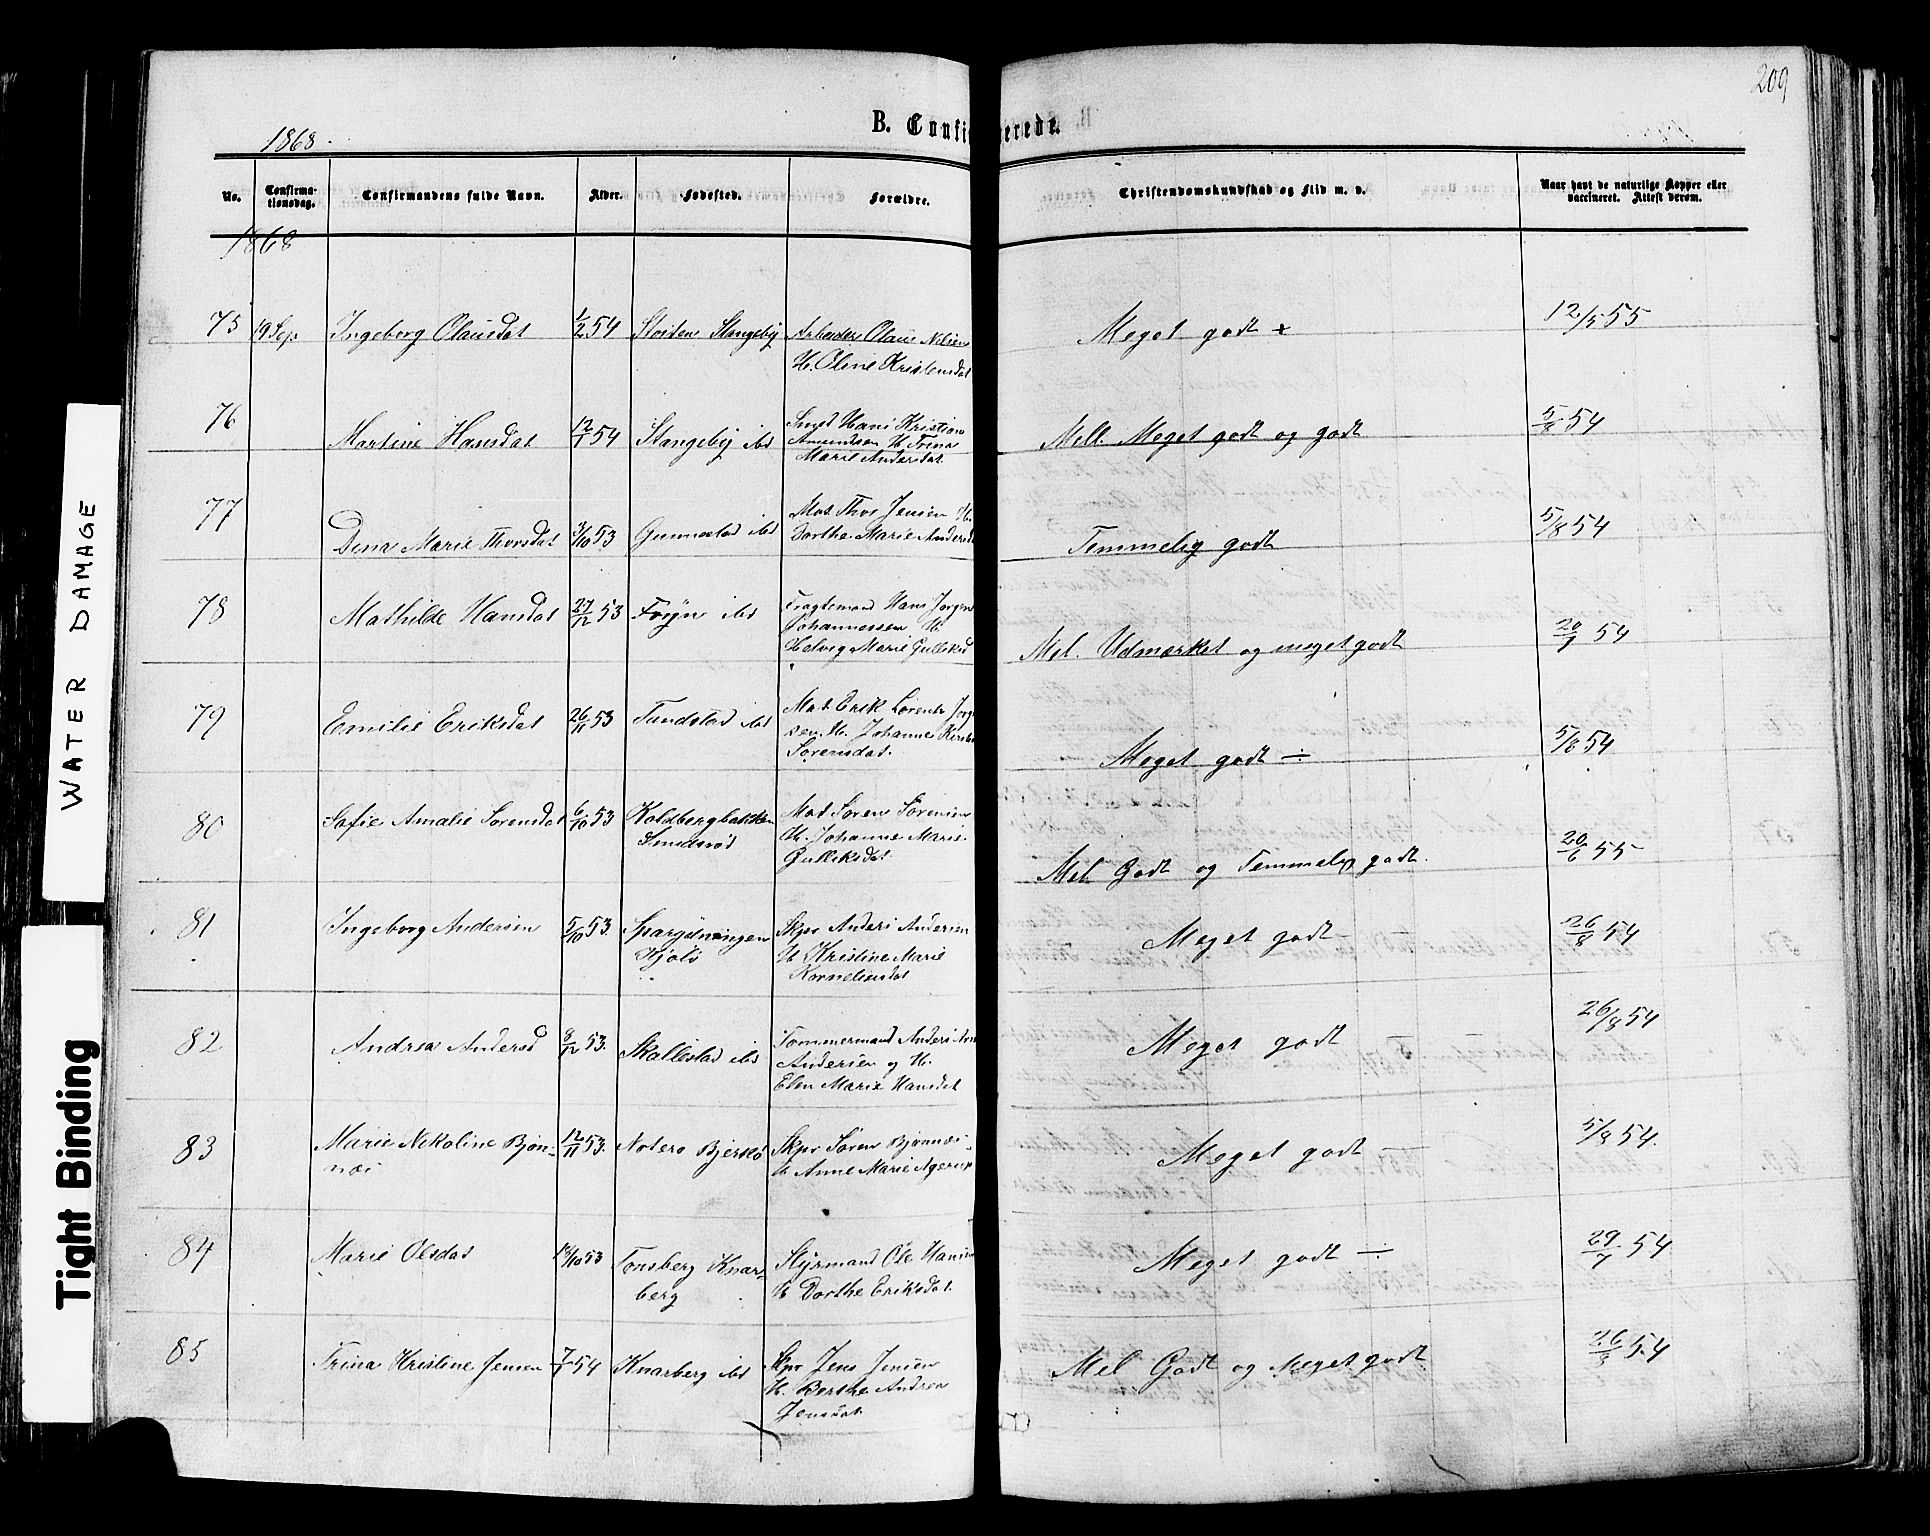 209
B. Confirmerede.
1868.
No.
Confirma-
tionsdag.
Confirmandens fulde Navn.
Alder.
Fødested.
Forældre.
Christendomskundskab og Flid m. v.
Naar havt de naturlige Kopper eller
vaccineret. Attest derom.
1868
75 19 Sep Ingeborg Olausdat 1/2 54 Slangeby Arbeider Olaus Nilsen
H. Oline Kristensdat
Meget godt + 12/5 55
76 Martine Hansdat 12/1 54 Slangeby ibd Smed Hans Kristian
Amundsen H. Trina
Marie Andersdat
Mell. Meget godt og godt 5/8 54
77 Dina Marie Thorsdat 3/10 53 Gunnestad ibd Mat Thor Jensen H.
Dorthe Marie Anders
Temmelig godt 5/8 54
78 Mathilde Hansdat 27/12 53 Foÿn ibd Fragtemand Hans Jørgen
Johannessen H.
Hedvig Marie Gulleksd
Mel. Udmærket og meget godt 20/7 54
79 Emilie Eriksdat 26/11 53 Sundstad ibd Mat Erik Lorents Jørg
sen H. Johanne Kirstin
Sørensdat.
Meget godt ÷ 5/8 54
80 Sofie Amalie Sørensdat 6/10 53 Koldbergbakken
Smidsrød
Mat Søren Sørensen
H. Johanne Marie
Gulleksdat
Mel Godt og Temmelig godt. 20/6 55
81 Ingeborg Andersen 5/10 53. Kjøle
Skpr Anders Andersen
H Kristine Marie
Korneliusdat
Meget godt 26/8 54
82 Andrea Andersd 8/12 53. Skallestad ibd Tømmermand Anders
Andersen og H.
Elen Marie Hansdat
Meget godt 26/8 54
83 Marie Nikoline Bjøn-
næs
12/11 53. Nøterø Bjerkø Skpr Søren Bjønnæs
H Anne Marie Agerup
Meget godt — 5/8 54.
84 Marie Olsdat 18/10 53 Tønsberg Knar-
berg
Styrmand Ole Hansen
H Dorthe Eriksdat.
Meget godt ÷ 29/7 54
85 Trina Kristine Jensen 7/1 54 Knarberg ibd Skpr Jens Jensen
H. Berthe Andrea
Jensdat
Mel Godt og Meget godt 26/8 54
WATER DAMAGE
Tight Binding